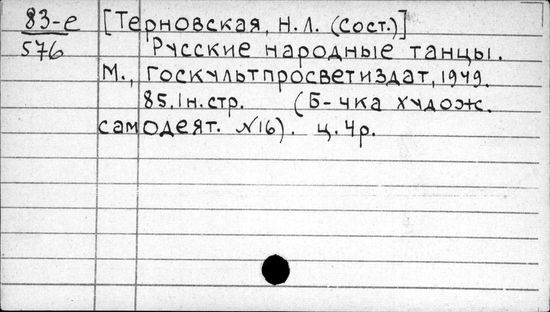 83-е [Терновская, Н.Л. (сост.)]
576 Русские народные танцы.
М., Госкультпросветиздат, 1949.
85, 1 н. стр. (Б-чка худож.
самодеят. №16). ц. 4р.